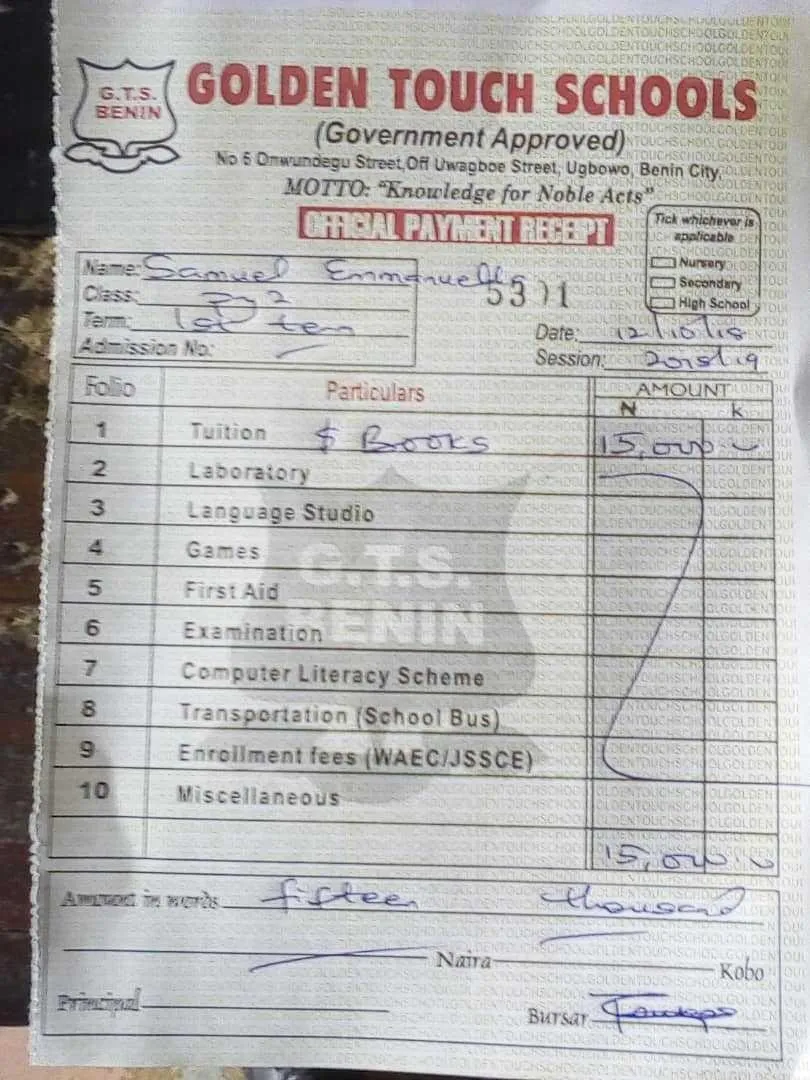 G.T.S.
BENIN
GOLDEN TOUCH SCHOOLS
(Government Approved)
No 6 Omwundegu Street, Off Uwagboe Street, Ugbowo, Benin City.
MOTTO: "Knowledge for Noble Acts"
OFFICIAL PAYMENT RECEIPT
Tick whichever is
applicable
Nursery
Secondary
High School
Name: Samuel Emmanuella
5311
Class: 2
Term: 1st
Admission No:
Date: 12/10/18
Session: 2018/19
Folio Particulars AMOUNT
N k
1 Tuition $ Books 15,000
2 Laboratory
3 Language Studio
4 Games
5 First Aid
6 Examination
7 Computer Literacy Scheme
8 Transportation (School Bus)
9 Enrollment fees (WAEC/JSSCE)
10 Miscellaneous
G.T.S.
BENIN
15,000
Amount in words fifteen thousand
Naira Kobo
Principal
Bursar